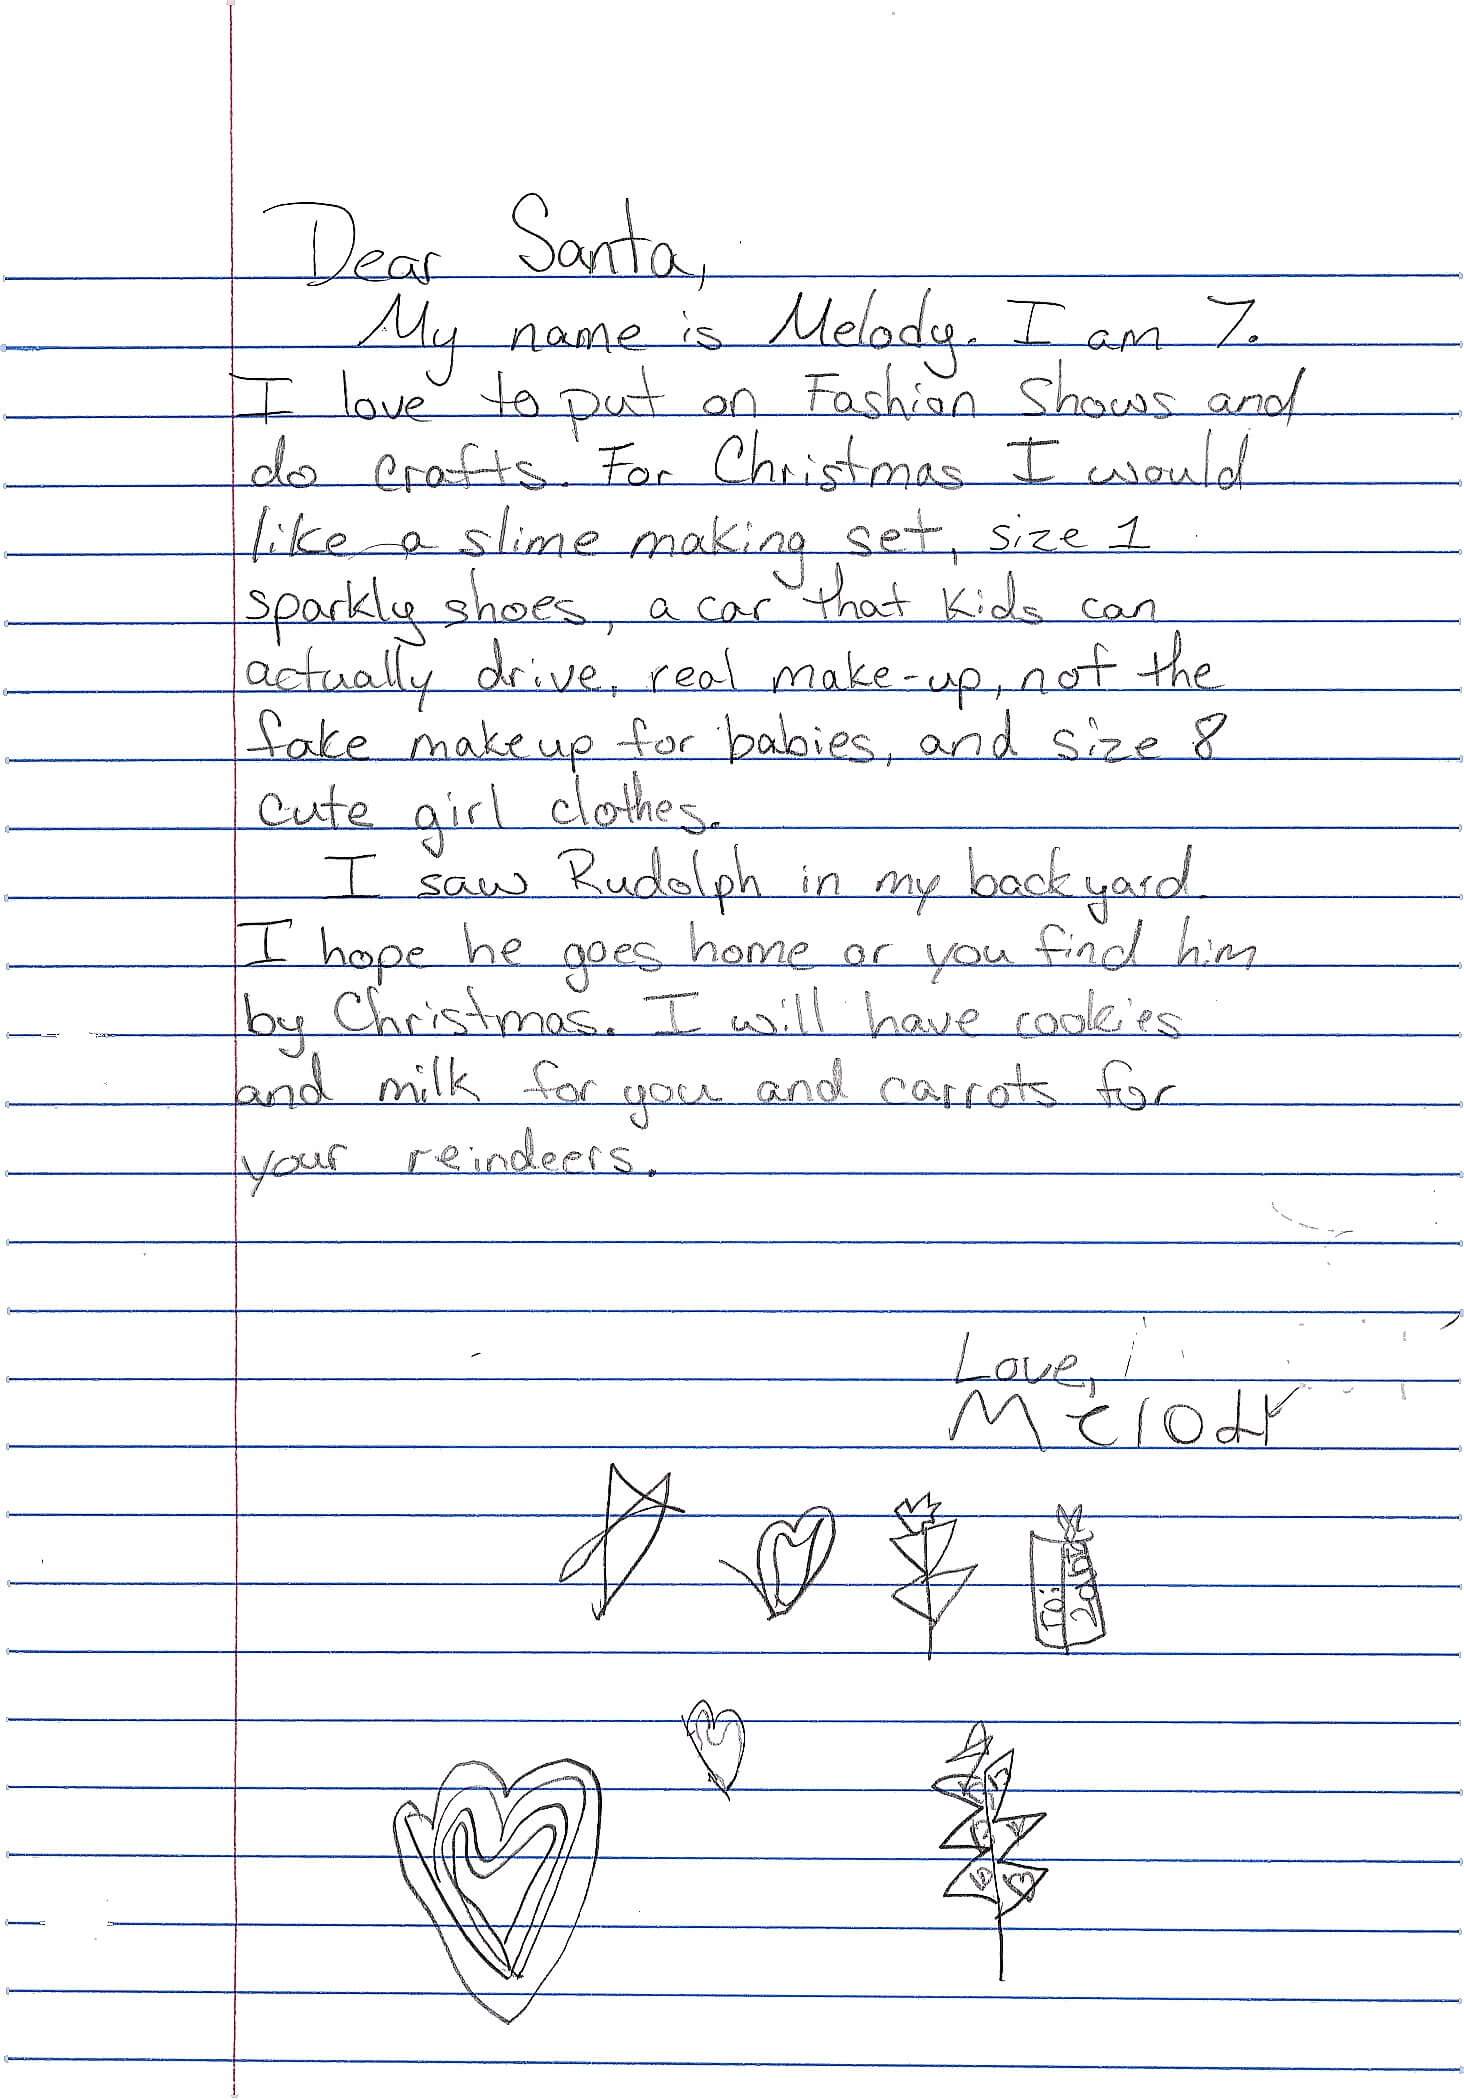 Dear Santa,
My name is Melody. I am 7.
I love to put on Fashion Shows and
do crafts. For Christmas I would
like a slime making set, size 1
sparkly shoes, a car that kids can
actually drive, real make-up, not the
fake makeup for babies, and size 8
cute girl clothes.
I saw Rudolph in my backyard.
I hope he goes home or you find him
by Christmas. I will have cookies
and milk for you and carrots for
your reindeers.
Love,
Melody